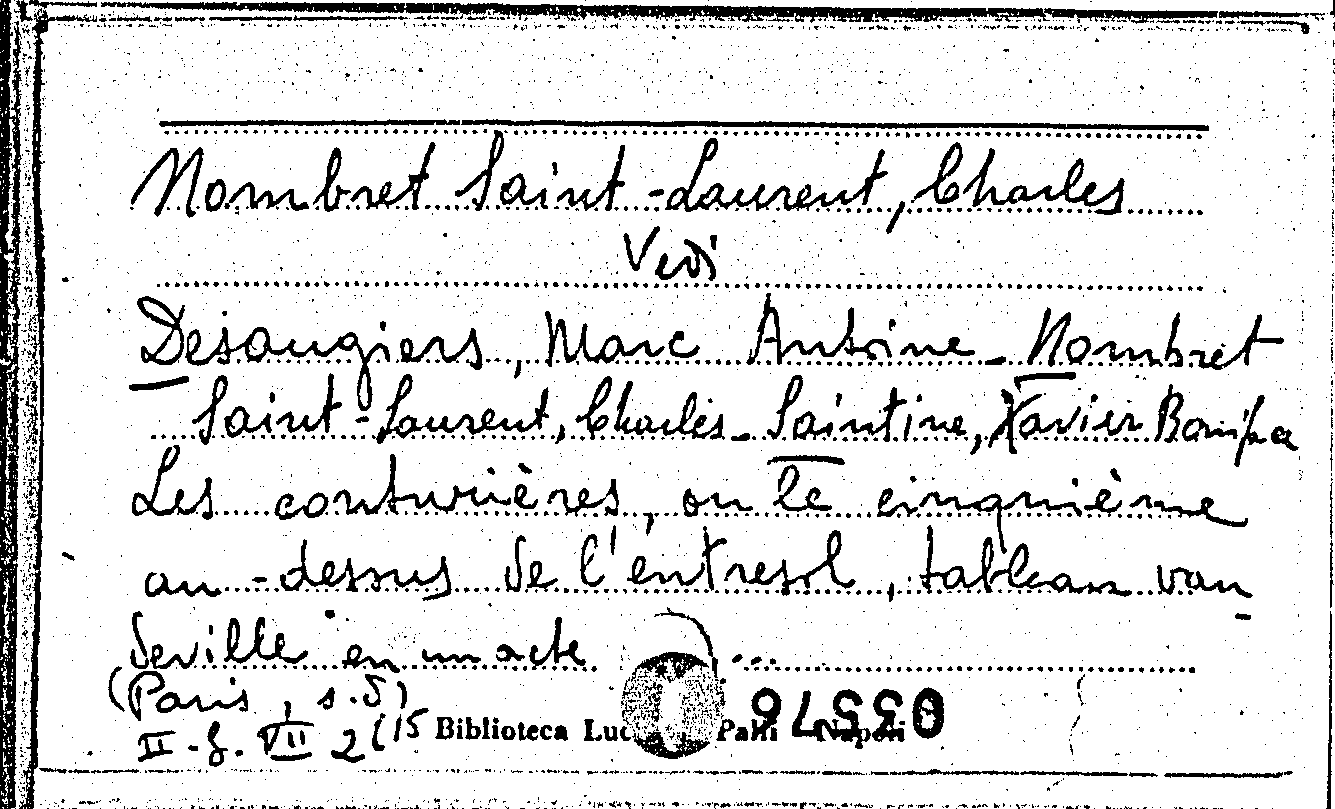 Nombret Saint-Laurent, Charles
Vedi
Desaugiers, Marc Antoine - Nombret
Saint-Laurent, Charles - Saintine, Xavier Boniface
Les couturières, ou le cinquième
au-dessus de l'entresol, tableau vau
deville en un acte ...
(Paris, s.d)
II-g. VII 2(15 Biblioteca Luc Palli Napoli